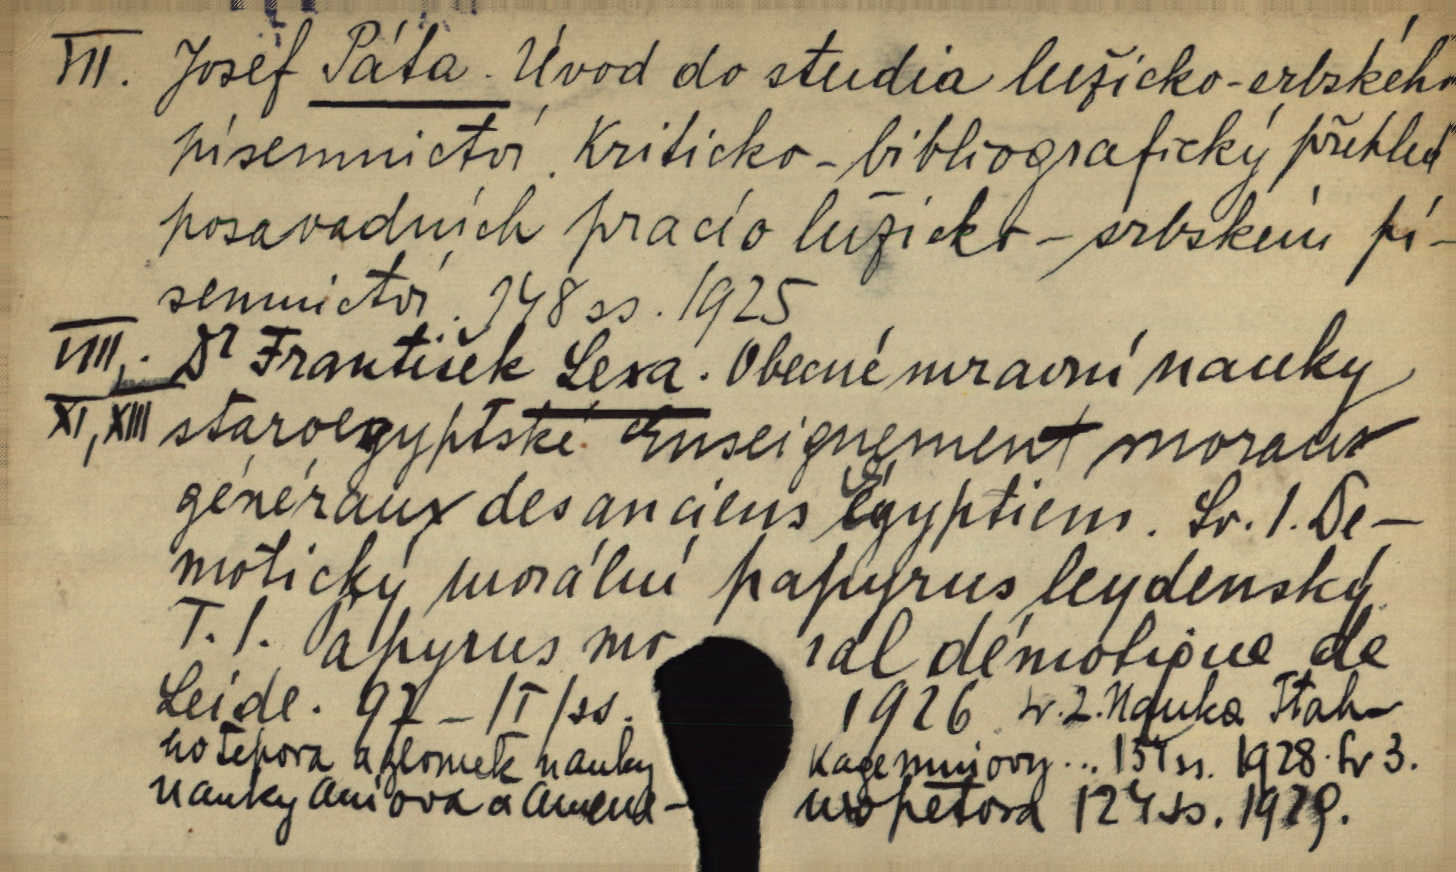 VII. Josef Páta. Úvod do studia lužicko-srbského
písemnictví. Kriticko-bibliografický přehled
posavadních prací o lužicko-srbském pí-
semnictví. 248 ss. 1925
VIII,. Dr František Lexa. Obecné mravní nauky
XI, XIII staroegyptské. Enseignement moraux
généraux des anciens Égyptiens. Sv. 1. De-
motický morální papyrus leydenský
T. 1. Papyrus mo ral démotique de
Leide. 97 - /I/ss. 1926 Sv. 2. Nauka Ptah-
hotepova a zlomek nauky Kagemniovy... 151 ss. 1928. Sv 3.
Nauky Aniova a Amene- mopetova 124 ss. 1929.